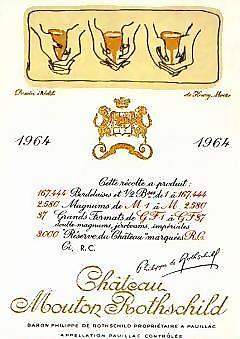 Dessin inédit de Henry Moore
1964 1964
Cette récolte a produit:
167.444 Bordelaises et ½ Bses de 1 à 167.444
2.380 Magnums de M 1 à M 2.380
87 Grands Formats de GF1 à GF87
double magnums, jéroboams, impériales
3000 "Réserve du Château" marquées R.C.
Ci, R.C.
Philippe de Rothschild
Château
Mouton Rothschild
BARON PHILIPPE DE ROTHSCHILD PROPRIÉTAIRE A PAUILLAC
APPELLATION PAUILLAC CONTRÔLÉE